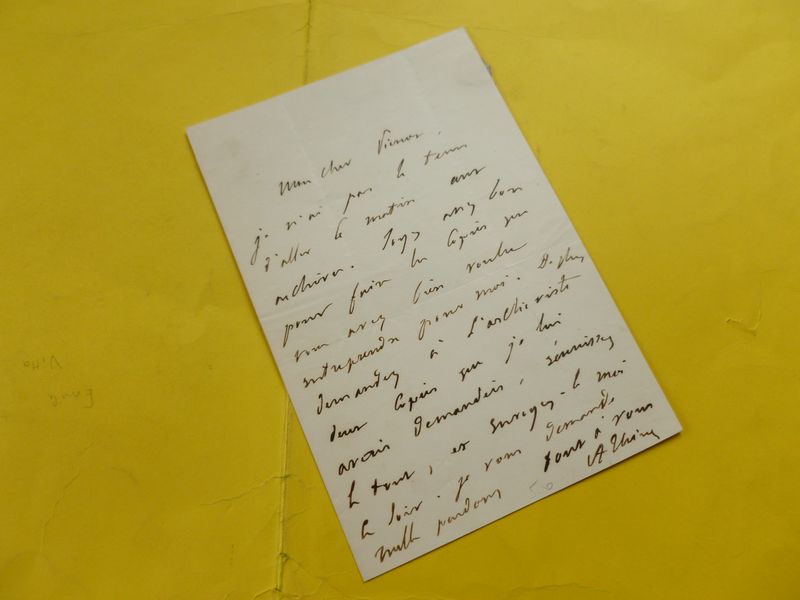 Mon cher
je n'ai pas le tems
d'aller le matin aux
archives. Soyez assez bon
pour faire les copies que
vous avez bien voulu
entreprendre pour moi. De plus
demandez à l'archiviste
deux copies que je lui
avais demandées, réunissez
le tout, et envoyez-le moi
le soir. je vous demande
mille pardons tout à vous
A Thiers
500